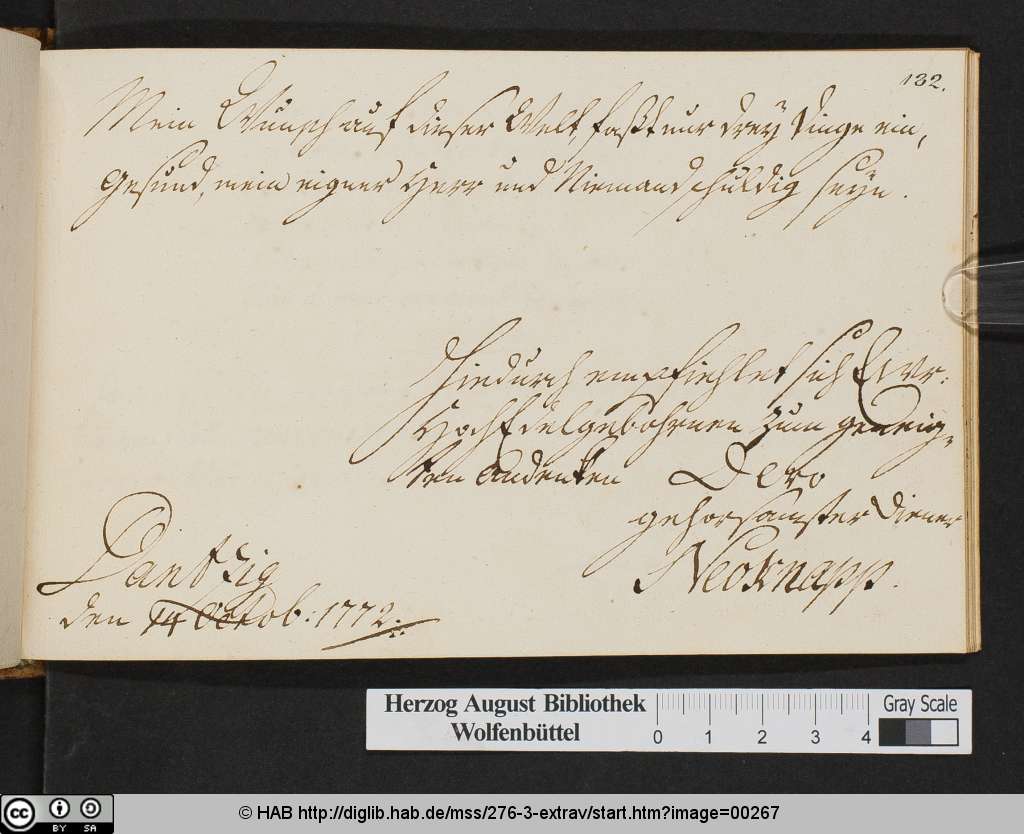 132.
Mein Wunsch auf dieser Welt, faßt nur drey Dinge ein,
Gesund, mein eigner Herr und Niemand schuldig seyn.
Hiedurch empfiehlet sich Ewr:
HochEdelgebohrnen zum geneig-
ten Andenken Dero
gehorsamster Diener
Neoknapp.
Dantzig
den 14 Octob: 1772.
Herzog August Bibliothek
Wolfenbüttel
0 1 2 3 4
Gray Scale
cc BY SA
© HAB http://diglib.hab.de/mss/276-3-extrav/start.htm?image=00267